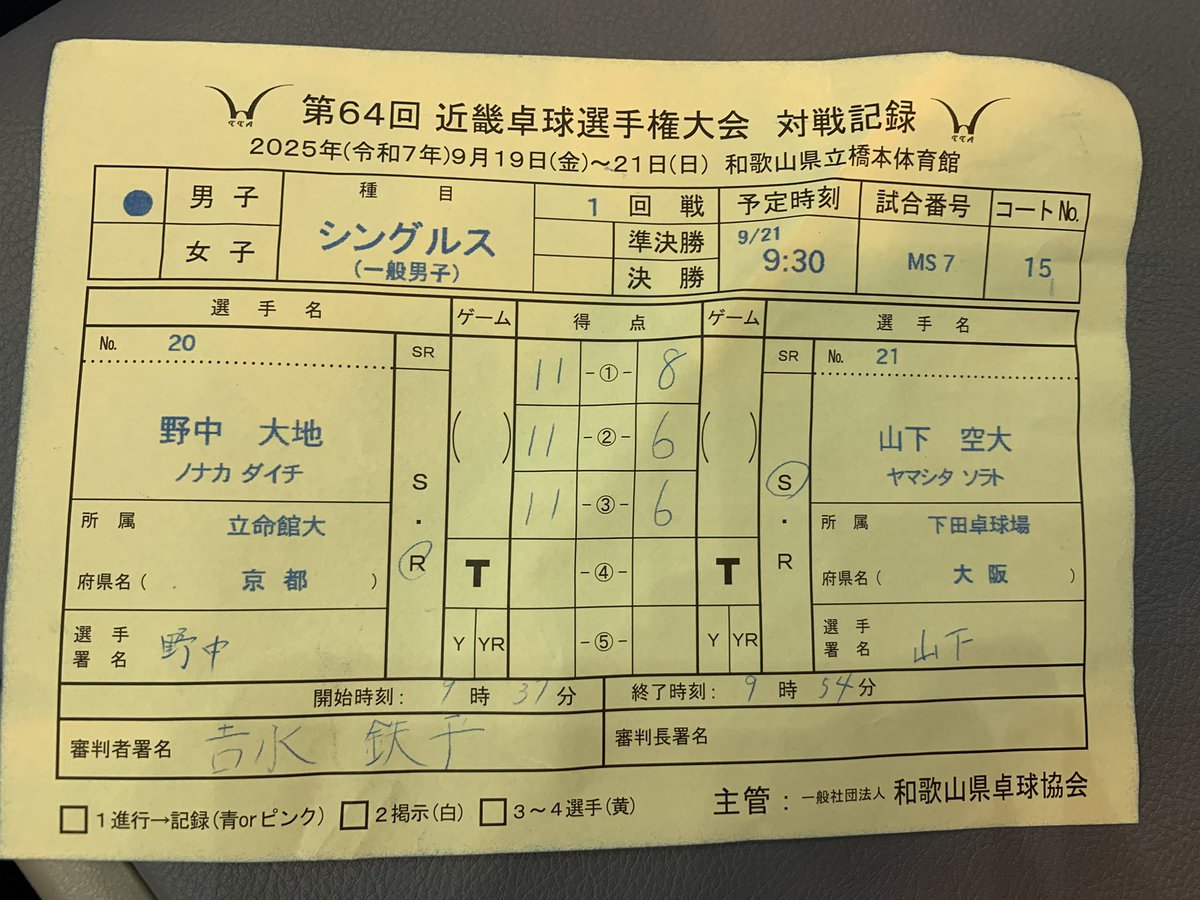 第64回 近畿卓球選手権大会 対戦記録
TTA
TTA
2025年(令和7年)9月19日(金)～21日(日) 和歌山県立橋本体育館
● 男子
女子
種目
シングルス
(一般男子)
1 回戦
準決勝
決勝
予定時刻
9/21
9:30
試合番号
MS 7
コートNo.
15
選手名 ゲーム 得点 ゲーム 選手名
No. 20
SR
野中 大地
ノナカ ダイチ
所属 立命館大
府県名( 京都 )
選手署名 野中
S・R
( )
T
Y YR
11 -①- 8
11 -②- 6
11 -③- 6
-④-
-⑤-
( )
T
Y YR
SR
S・R
No. 21
山下 空大
ヤマシタ ソラト
所属 下田卓球場
府県名( 大阪 )
選手署名 山下
開始時刻: 9時37分 終了時刻: 9時54分
審判者署名 吉水 鉄平
審判長署名
□1進行→記録(青orピンク) □2掲示(白) □3～4選手(黄)
主管: 一般社団法人 和歌山県卓球協会